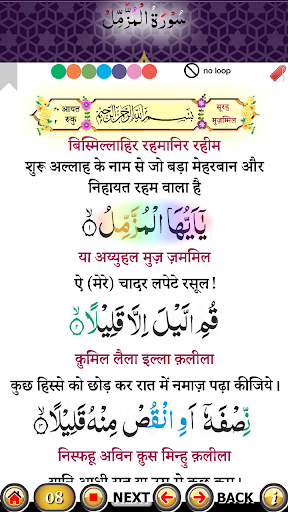 سُوْرَةُ الْمُزَّمِّل
no loop
आयत २० रुकु २
بِسْمِ اللهِ الرَّحْمٰنِ الرَّحِيْمِ
सूरह मुज़म्मिल
बिस्मिल्लाहिर रहमानिर रहीम
शुरू अल्लाह के नाम से जो बड़ा मेहरबान और
निहायत रहम वाला है
يٰۤاَيُّهَا الْمُزَّمِّلُ ۙ‏﴿۱﴾
या अय्युहल मुज़ ज़ममिल
ऐ (मेरे) चादर लपेटे रसूल!
قُمِ الَّيْلَ اِلَّا قَلِيْلًا ۙ‏﴿۲﴾
क़ुमिल लैला इल्ला क़लीला
कुछ हिस्से को छोड़ कर रात में नमाज़ पढ़ा कीजिये।
نِّصْفَهٗۤ اَوِ انْقُصْ مِنْهُ قَلِيْلًا ۙ‏﴿۳﴾
निस्फहू अविन क़ुस मिन्हु क़लीला
08 NEXT BACK